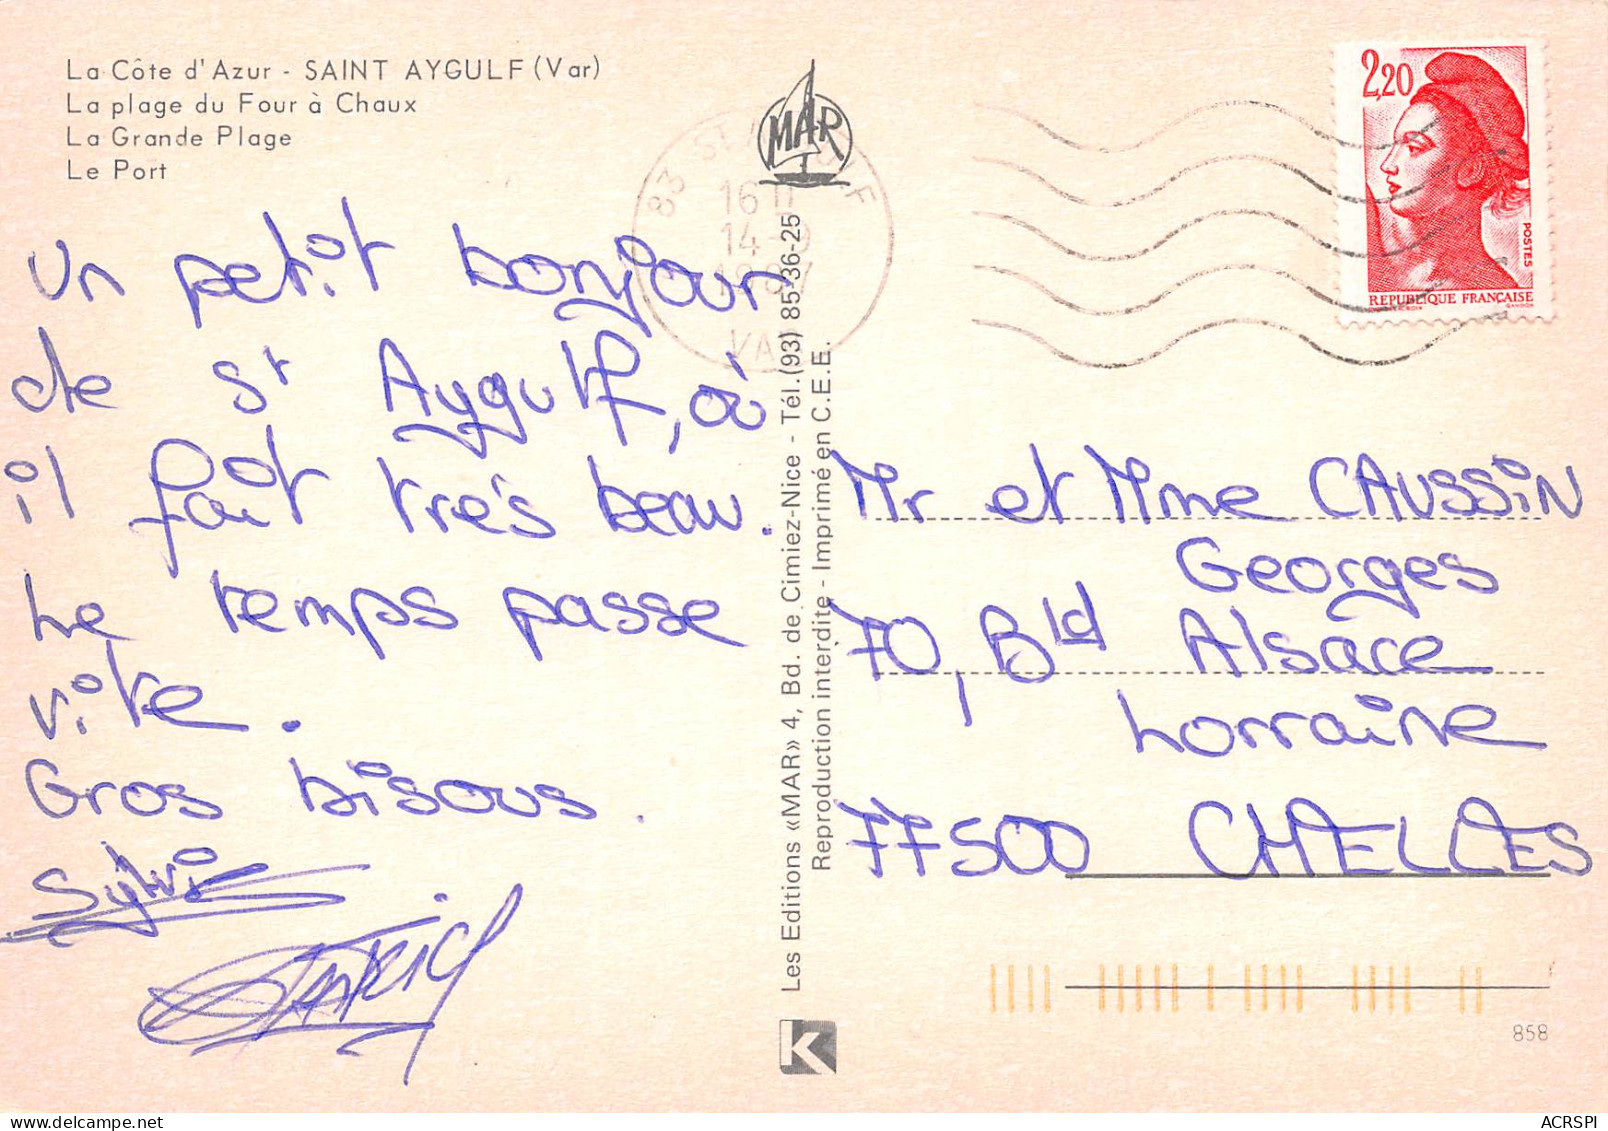 La Côte d'Azur - SAINT AYGULF (Var)
La plage du Four à Chaux
La Grande Plage
Le Port
Un petit bonjour
de St Aygulf, où
il fait très beau.
Le temps passe
vite.
Gros bisous.
Sylvie
PATRICK
MAR
83 ST
16 H
14
1987
VAR
Les Editions «MAR» 4, Bd. de Cimiez-Nice - Tél. (93) 85-36-25
Reproduction interdite - Imprimé en C.E.E.
K
2,20
POSTES
REPUBLIQUE FRANÇAISE
GANDON
Mr et Mme CAUSSiN
Georges
70, Bld Alsace
Lorraine
77500 CHELLES
858
ACRSPI